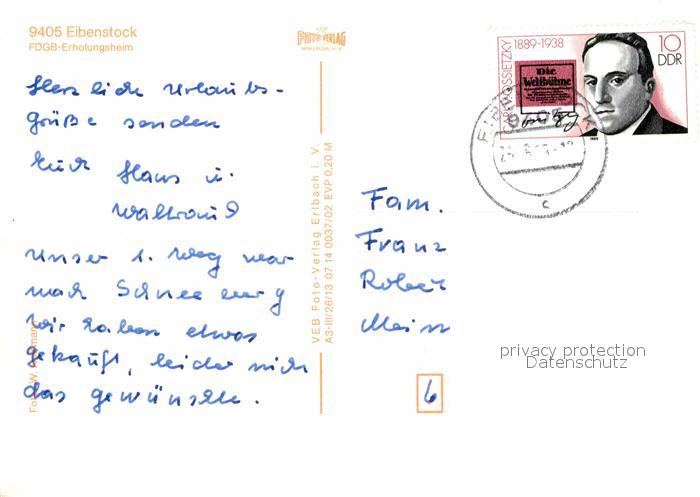 9405 Eibenstock
FDGB-Erholungsheim
FOTO VERLAG
OSSIETZKY 1889-1938
10
DDR
Die
Weltbühne
Herzliche Urlaubs-
grüße senden
Euch Hans u.
Waltraud
Unser 1. Weg war
nach Schneeberg
Wir haben etwas
gekauft, leider nicht
das gewünschte.
VEB Foto-Verlag Erlbach i. V.
A3-III/26/13 07 14 0037/02 EVP 0,20 M
Fam.
Franz
Robert
6
c
privacy protection
Datenschutz